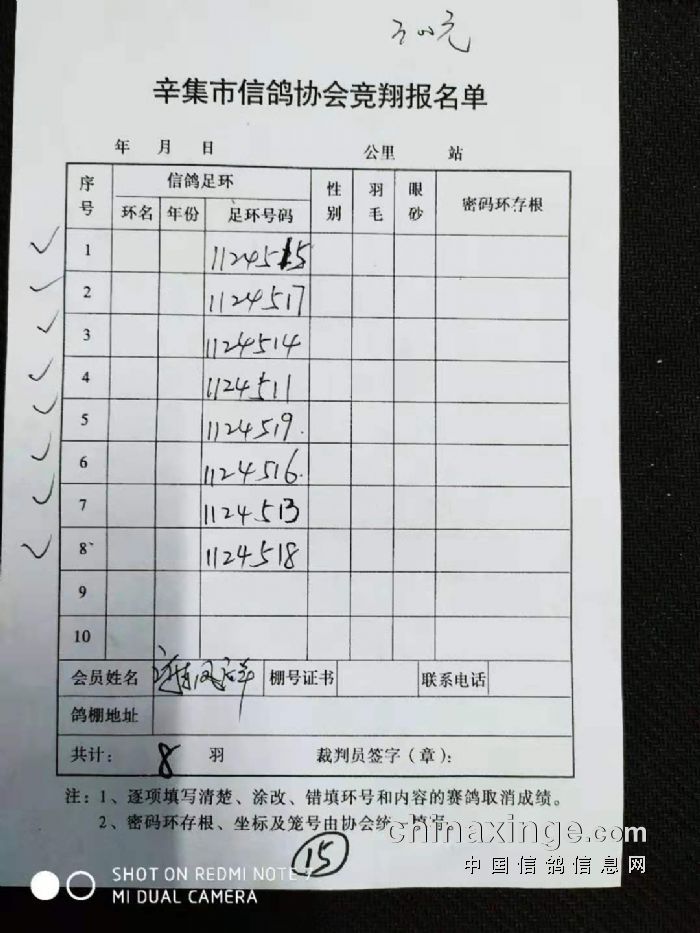 300元
辛集市信鸽协会竞翔报名单
年 月 日 公里 站
序号 信鸽足环 性别 羽毛 眼砂 密码环存根
环名 年份 足环号码
1 1124515
2 1124517
3 1124514
4 1124511
5 1124519.
6 1124516.
7 1124513
8 1124518
9
10
会员姓名 棚号证书 联系电话
鸽棚地址
共计: 8 羽 裁判员签字(章):
注: 1、逐项填写清楚、涂改、错填环号和内容的赛鸽取消成绩。
2、密码环存根、坐标及笼号由协会统一填写
15
chinaxinge.com
中国信鸽信息网
SHOT ON REDMI NOTE 7
MI DUAL CAMERA